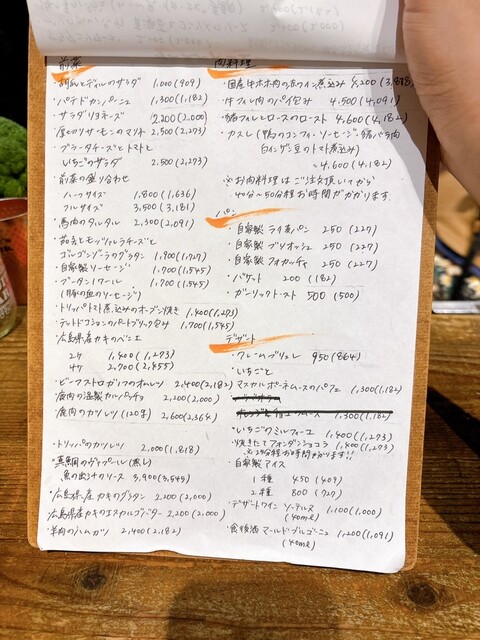 前菜
・胡瓜とディルのサラダ 1,000(909)
・パテドカンパーニュ 1,300(1,182)
・サラダリヨネーズ 2,200(2,000)
・厚切りサーモンのマリネ 2,500(2,273)
・ブラータチーズとトマトと
いちごのサラダ 2,500(2,273)
・前菜の盛り合わせ
ハーフサイズ 1,800(1,636)
フルサイズ 3,500(3,181)
・馬肉のタルタル 2,300(2,091)
・茄子とモッツァレラチーズと
ゴルゴンゾーラのグラタン 1,900(1,727)
・自家製ソーセージ 1,700(1,545)
・ブーダンノワール 1,700(1,545)
(豚の血のソーセージ)
・トリッパトマト煮込みのオーブン焼き 1,400(1,273)
・テットドコションのパートブリック包み 1,700(1,545)
・広島県産カキのベニエ
2ケ 1,400(1,273)
4ケ 2,700(2,455)
・ビーフストロガノフのオムレツ 2,400(2,182)
・鹿肉の温製カルパッチョ 2,200(2,000)
・鹿肉のカツレツ(120g) 2,600(2,364)
・トリッパのカツレツ 2,000(1,818)
・真鯛のヴァプール(蒸し)
魚の出汁のソース 3,900(3,545)
・広島県産カキのグラタン 2,200(2,000)
・広島県産カキのエスカルゴバター 2,200(2,000)
・羊肉のハムカツ 2,400(2,182)
肉料理
・国産牛ホホ肉の赤ワイン煮込み 4,200(3,818)
・牛フィレ肉のパイ包み 4,500(4,091)
・豚フィレとロースのロースト 4,600(4,182)
・カスレ(鴨のコンフィ・ソーセージ・豚バラ肉
白インゲン豆のトマト煮込み)
4,600(4,182)
※お肉料理はご注文頂いてから
40分〜50分程お時間がかかります.
パン
・自家製ライ麦パン 250(227)
・自家製ブリオッシュ 250(227)
・自家製フォカッチャ 250(227)
・バゲット 200(182)
・ガーリックトースト 500(500)
デザート
・クレームブリュレ 950(864)
・いちごと
マスカルポーネムースのパフェ 1,300(1,182)
1,300(1,182)
・いちごのミルフィーユ 1,400(1,273)
・焼きたてフォンダンショコラ 1,400(1,273)
・自家製アイス
1種 450(409)
2種 800(727)
・デザートワイン ソーテルヌ 1,100(1,000)
(40ml)
・食後酒 マールドブルゴーニュ 1,200(1,091)
(40ml)